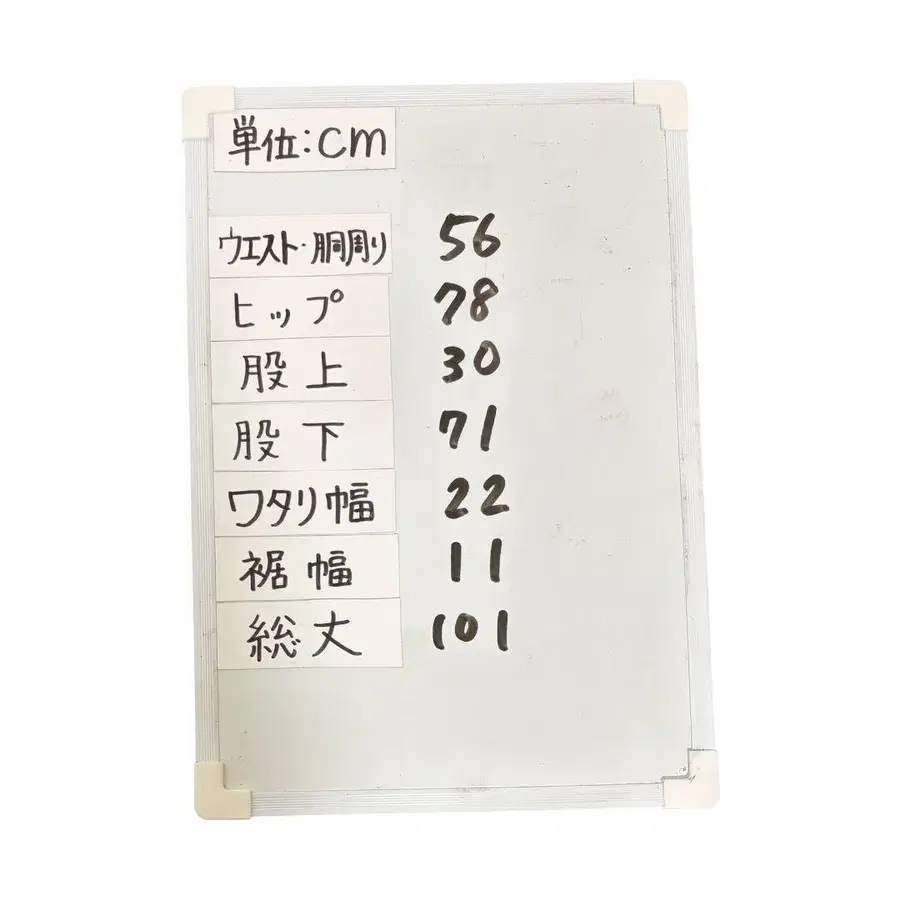 単位:cm
ウエスト・胴周り 56
ヒップ 78
股上 30
股下 71
ワタリ幅 22
裾幅 11
総丈 101